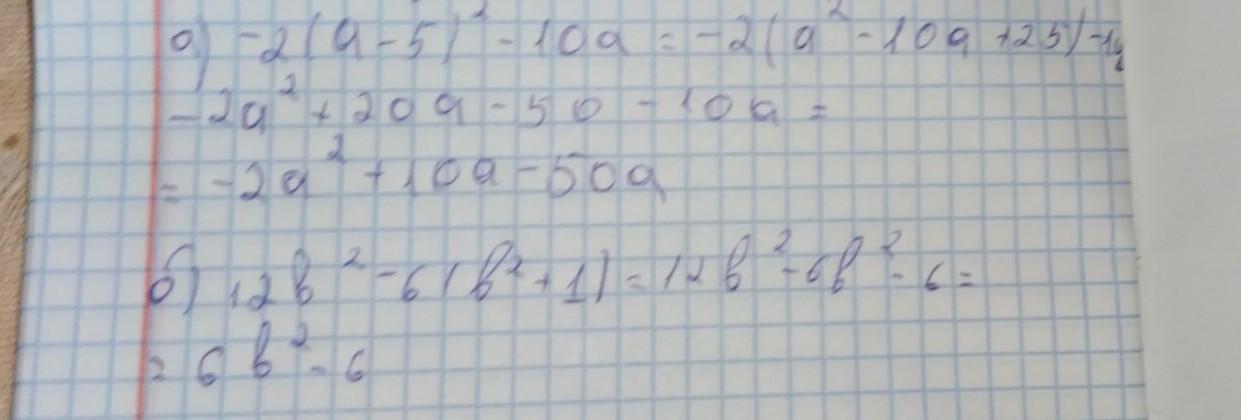 а) -2(a-5)² - 10a = -2(a² - 10a + 25) -
-2a² + 20a - 50 - 10a =
= -2a² + 10a - 50a
б) 12b² - 6(b² + 1) = 12b² - 6b² - 6 =
= 6b² - 6